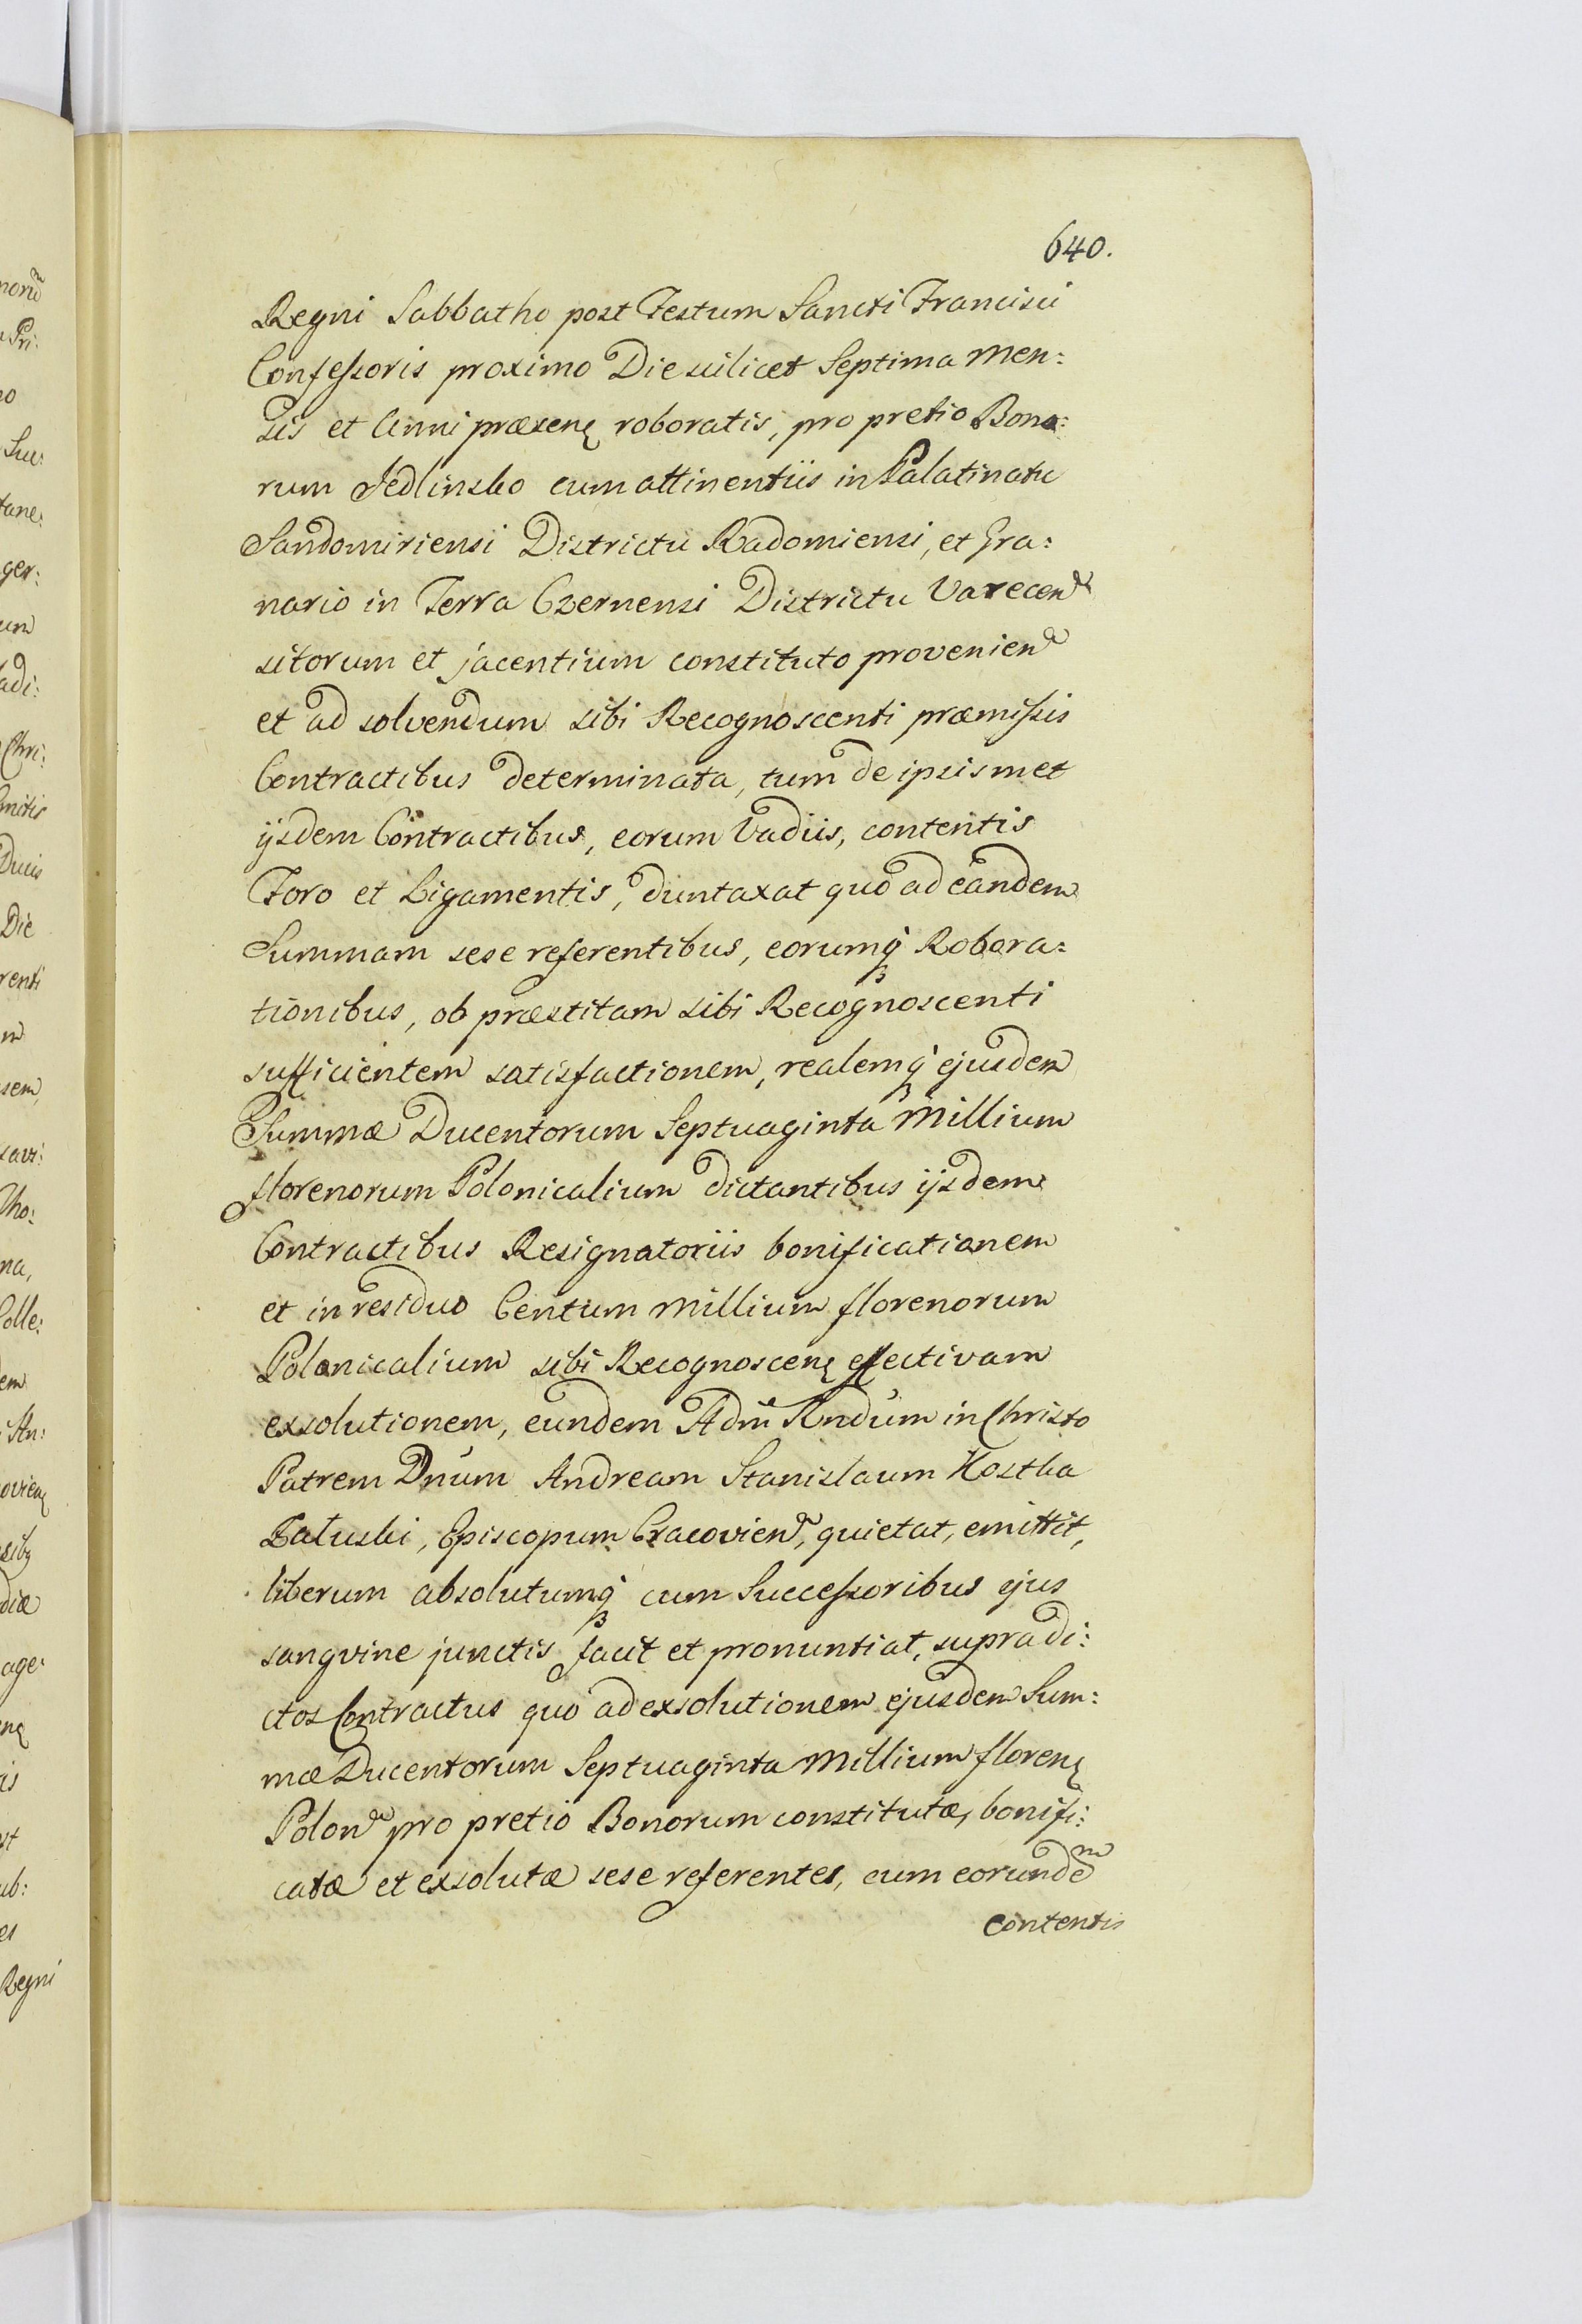 640.
Regni Sabbatho post Festum Sancti Francisci
Confessoris proximo Die scilicet Septima Men:
sis et Anni præsenę roboratis, pro pretio Bono:
rum Jedlinsko cum attinentiis in Palatinatu
Sandomiriensi Districtu Radomiensi, et Gra:
nario in Terra Czernensi Districtu Varecen
sitorum et jacentium constituto provenien
et ad solvendum sibi Recognoscenti præmissis
Contractibus determinata, tum de ipsismet
ijsdem Contractibus, eorum Vadiis, contentis
Foro et Ligamentis, duntaxat quo ad eandem
Summam sese referentibus, eorumq₃ Robora:
tionibus, ob præstitam sibi Recognoscenti
sufficientem satisfactionem, realemq₃ ejusdem
Summæ Ducentorum Septuaginta Millium
florenorum Polonicalium dictantibus ijsdem
Contractibus Resignatoriis bonificationem
et in residuo Centum Millium florenorum
Polonicalium sibi Recognoscenę effectivam
exsolutionem, eundem Adm̃ Rndũm in Christo
Patrem Dnũm Andream Stanislaum Kostka
Załuski, Episcopum Cracovien, quietat, emittit,
liberum absolutumq₃ cum Successoribus ejus
sangvine junctis facit et pronuntiat, supradi:
ctos Contractus quo ad exsolutionem ejusdem Sum:
mæ Ducentorum Septuaginta Millium florenę
Polon pro pretio Bonorum constitutæ, bonifi:
catæ et exsolutæ sese referentes, cum eorundem
contentis